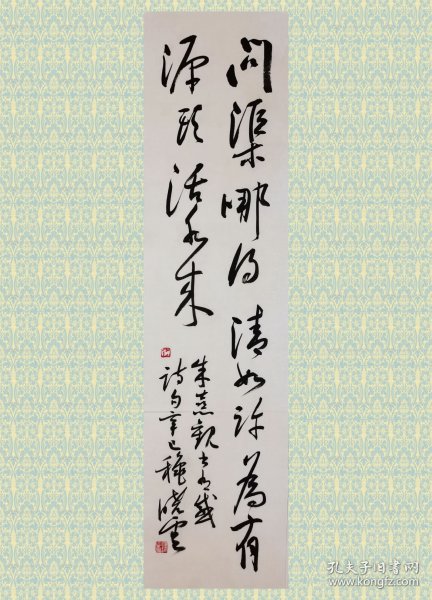 问渠哪得清如许为有
源头活水来
朱熹观书有感
诗句辛巳穆晓云
孔夫子旧书网
www.kongfz.com